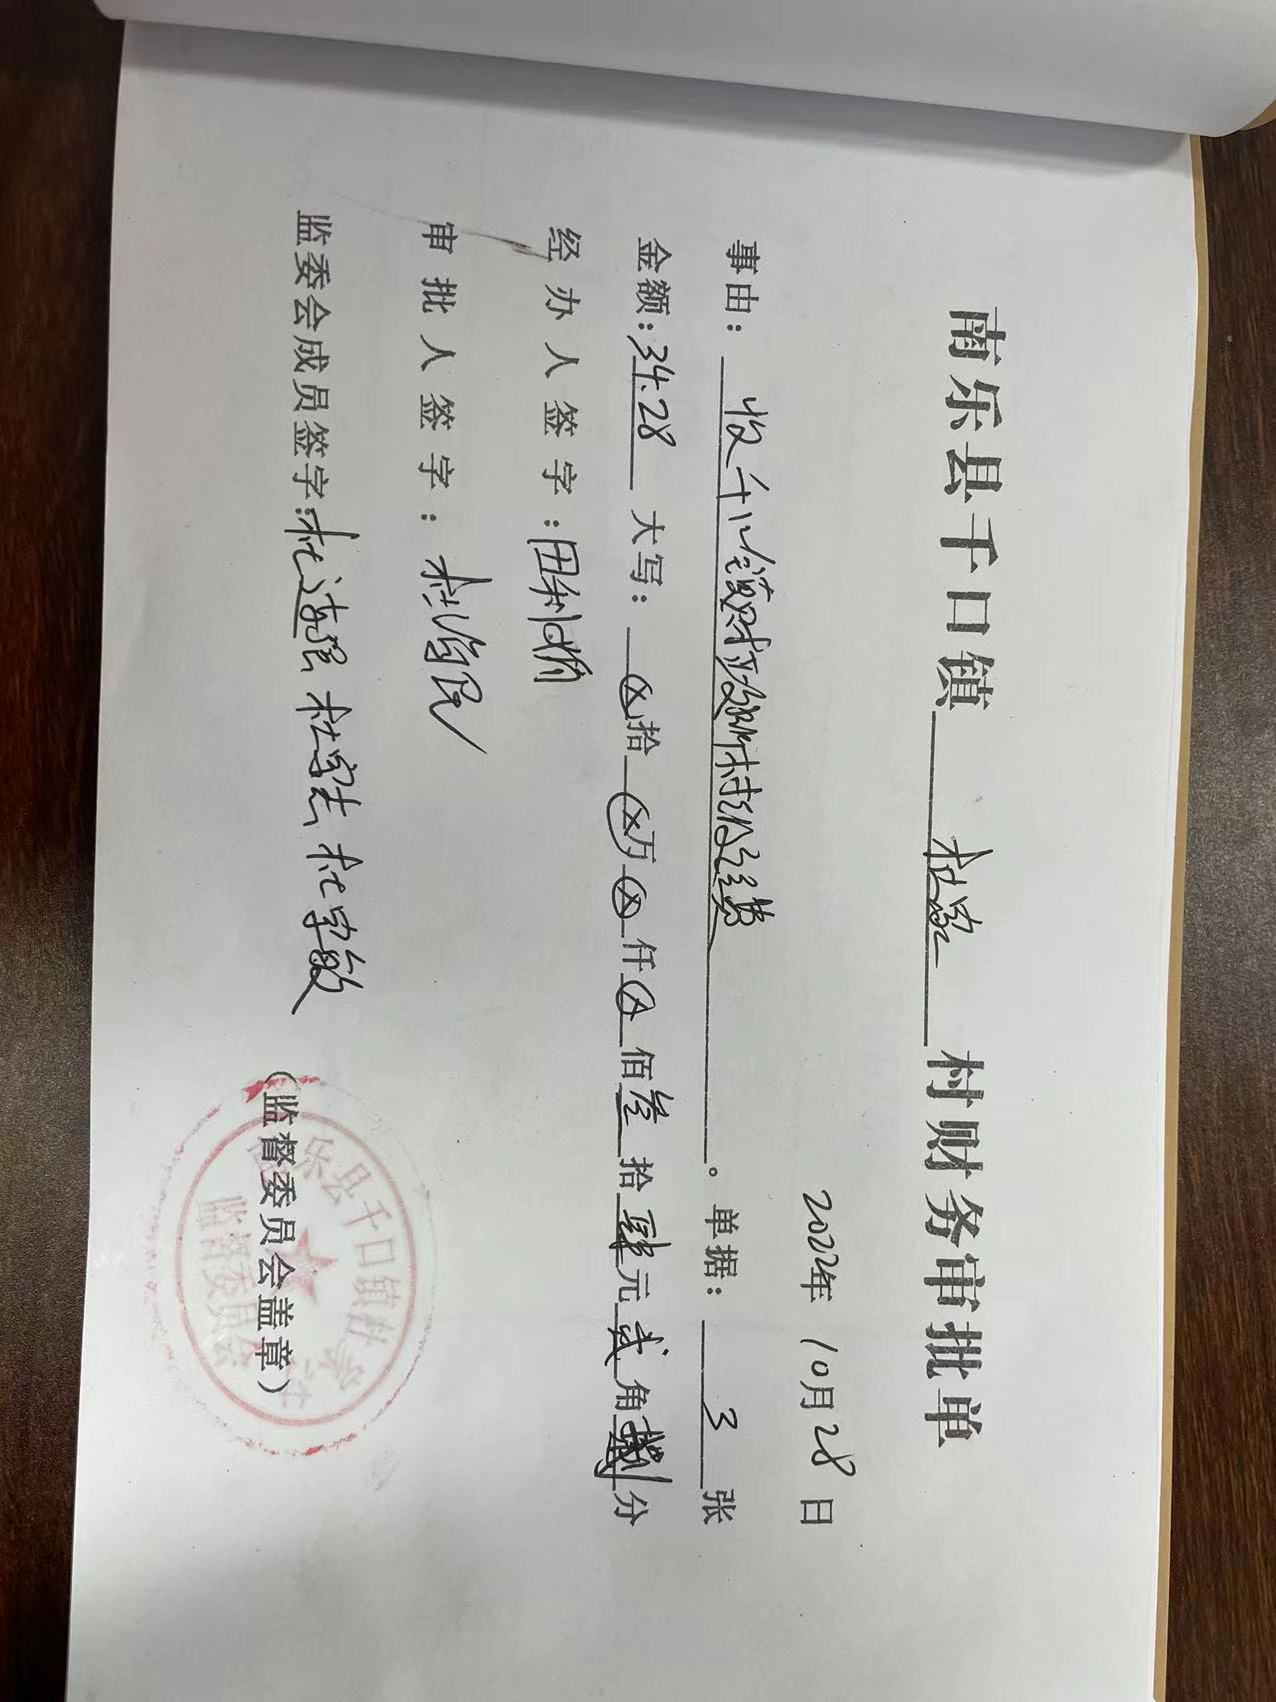 南乐县千口镇 杜家 村财务审批单
2022年 10月 28 日
事由： 收千口镇财政所村级经费 。单据： 3 张
金额：34.28 大写： ⊗拾⊗万⊗仟⊗佰叁拾肆元贰角捌分
经办人签字：田利娟
审批人签字：杜 民
监委会成员签字：杜连强 杜 杜字敏 （监督委员会盖章）
乐县千口镇杜家
监督委员会